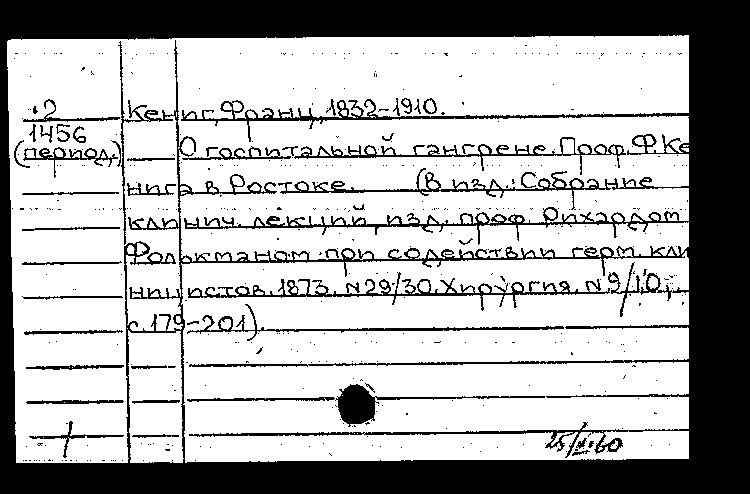 ·2
1456
(период.)
Кениг, Франц, 1832-1910.
О госпитальной гангрене. Проф. Ф. Ке
нига в Ростоке. (В изд.: Собрание
клинич. лекций, изд. проф. Рихардом
Фолькманом при содействии герм. кли
ницистов. 1873. N29/30. Хирургия. N9/10,
с. 179-201).